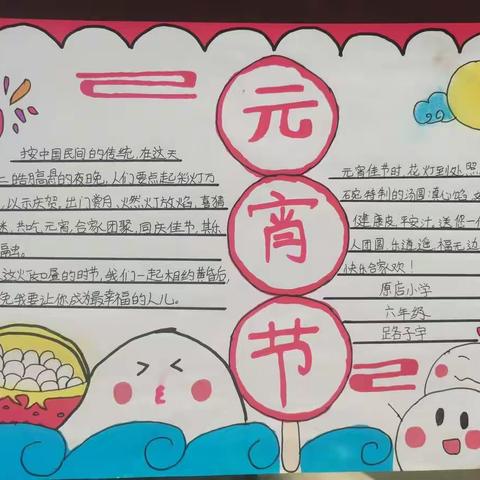 元
宵
节
按中国民间的传统,在这天
皓月高悬的夜晚,人们要点起彩灯万
,以示庆贺,出门赏月,燃灯放焰,喜猜
共吃元宵,合家团聚,同庆佳节,其乐
这火如荼的时节,我们一起相约黄昏后,
我要让你成为最幸福的人儿。
元宵佳节时,花灯到处照
碗特制的汤圆:真心馅,
健康皮,平安汁,送您一
人团圆,乐逍遥,福无边
快乐合家欢!
原店小学
六年级
路子宇